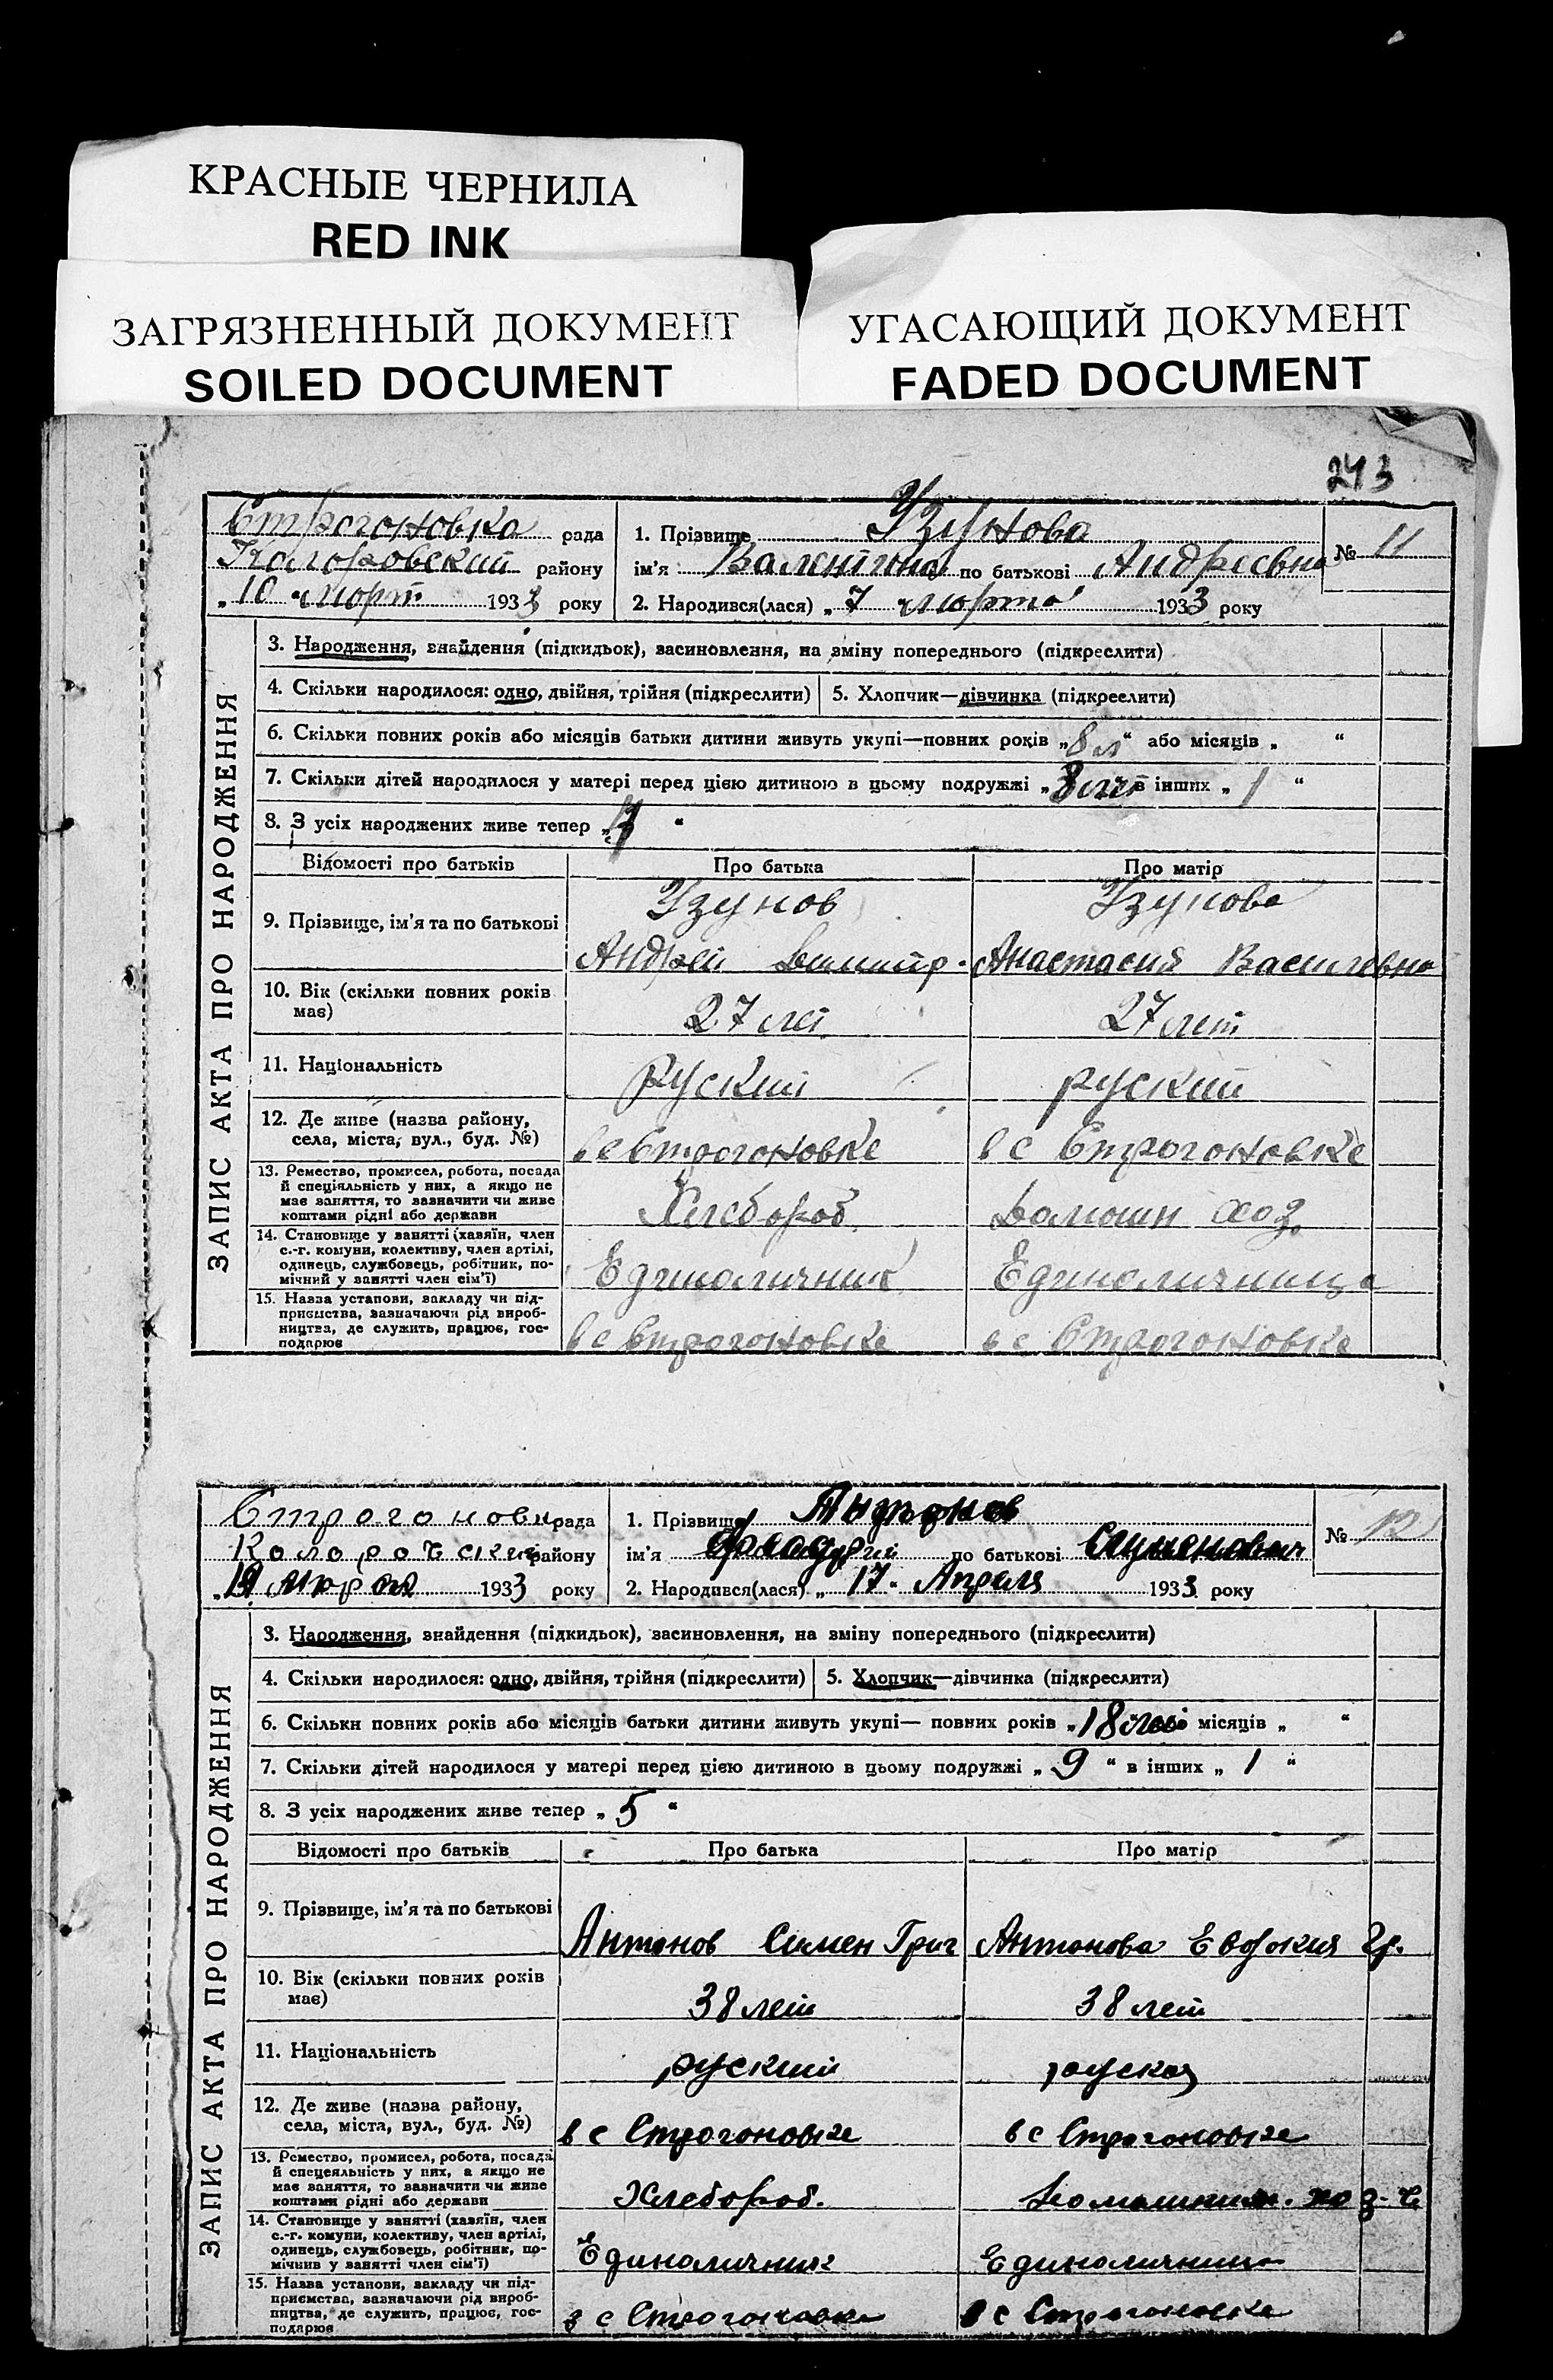 КРАСНЫЕ ЧЕРНИЛА
RED INK
ЗАГРЯЗНЕННЫЙ ДОКУМЕНТ
SOILED DOCUMENT
УГАСАЮЩИЙ ДОКУМЕНТ
FADED DOCUMENT
243
Строгоновка рада
району
„10 март 1933 року
1. Прізвище Узунова
ім'я Валентина по батькові Андреевна
2. Народився(лася) „7 марта 1933 року
№ 11
ЗАПИС АКТА ПРО НАРОДЖЕННЯ
3. Народження, знайдення (підкидьок), засиновлення, на зміну попереднього (підкреслити)
4. Скільки народилося: одно, двійня, трійня (підкреслити) 5. Хлопчик—дівчинка (підкреслити)
6. Скільки повних років або місяців батьки дитини живуть укупі—повних років „8 л“ або місяців „ “
7. Скільки дітей народилося у матері перед цією дитиною в цьому подружжі „3 в інших „ 1 “
8. З усіх народжених живе тепер „ “
Відомості про батьків Про батька Про матір
9. Прізвище, ім'я та по батькові
Узунов Узунова
Андрей Димитр. Анастасия Василевна
10. Вік (скільки повних років має) 27 лет 27 лет
11. Національність руский руский
12. Де живе (назва району, села, міста, вул., буд. №) в с Строгоновке в с Строгоновке
13. Ремество, промисел, робота, посада й спеціяльність у них, а якщо не має заняття, то зазначити чи живе коштами рідні або держави Хлебороб Домошн хоз.
14. Становище у занятті (хазяїн, член с.-г. комуни, колективу, член артілі, одинець, службовець, робітник, помічний у занятті член сім'ї) Единоличник Единоличница
15. Назва установи, закладу чи підприємства, зазначаючи рід виробництва, де служить, працює, господарює в с Строгоновке в с Строгоновке
Строгонов рада
району
„19 1933 року
1. Прізвище
ім'я по батькові
2. Народився(лася) „ 17 “ Апреля 1933 року
№ 12
ЗАПИС АКТА ПРО НАРОДЖЕННЯ
3. Народження, знайдення (підкидьок), засиновлення, на зміну попереднього (підкреслити)
4. Скільки народилося: одно, двійня, трійня (підкреслити) 5. Хлопчик—дівчинка (підкреслити)
6. Скільки повних років або місяців батьки дитини живуть укупі— повних років „18 лет місяців „ “
7. Скільки дітей народилося у матері перед цією дитиною в цьому подружжі „ 9 “ в інших „ 1 “
8. З усіх народжених живе тепер „ 5 “
Відомості про батьків Про батька Про матір
9. Прізвище, ім'я та по батькові Антонов Симен Григ Антонова Евдокия Гр.
10. Вік (скільки повних років має) 38 лет 38 лет
11. Національність руский руская
12. Де живе (назва району, села, міста, вул., буд. №) в с Строгоновке в с Строгоновке
13. Ремество, промисел, робота, посада й спецеяльність у них, а якщо не має заняття, то зазначити чи живе коштами рідні або держави Хлебороб.
14. Становище у занятті (хазяїн, член с.-г. комуни, колективу, член артілі, одинець, службовець, робітник, помічнив у занятті член сім'ї) Единоличник Единоличница
15. Назва установи, закладу чи підприємства, зазначаючи рід виробництва, де служить, працює, господарює в с Строгоновке в с Строгоновке